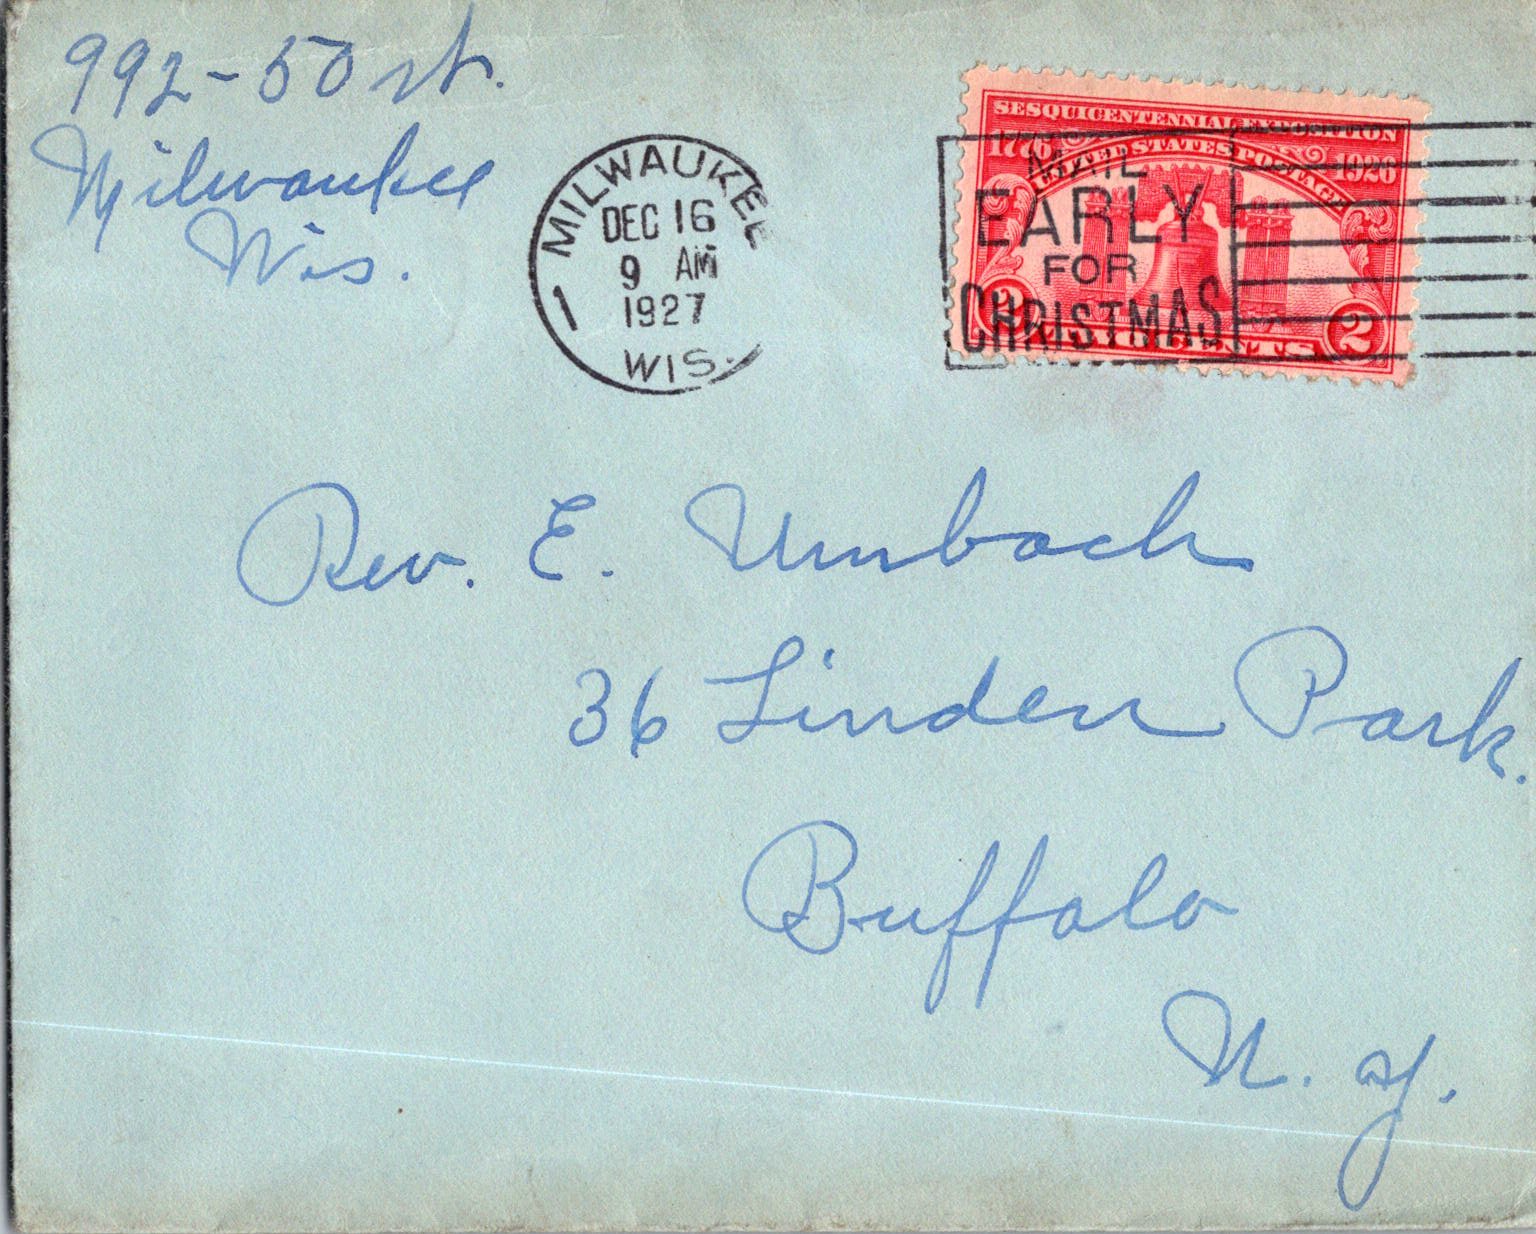 992-50 St.
Milwaukee
Wis.
MILWAUKEE
DEC 16
9 AM
1927
1
WIS.
SESQUICENTENNIAL EXPOSITION
1776 1926
UNITED STATES POSTAGE
2 TWO CENTS 2
MAIL
EARLY
FOR
CHRISTMAS
Rev. E. Umbach
36 Linden Park.
Buffalo
N. Y.